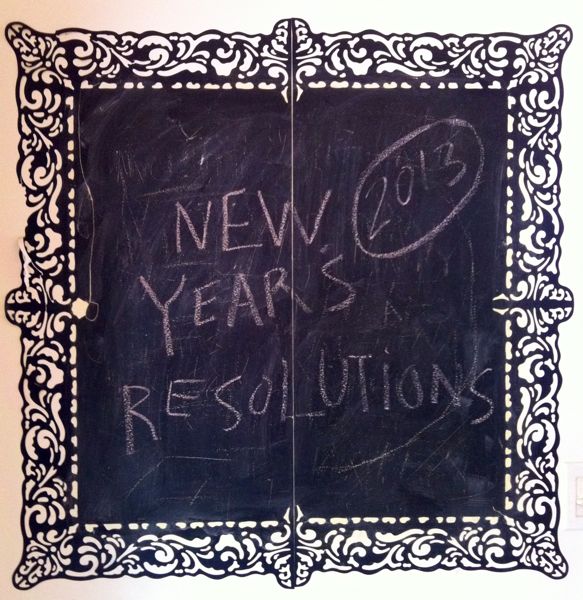 2013
NEW
YEAR'S
RESOLUTIONS